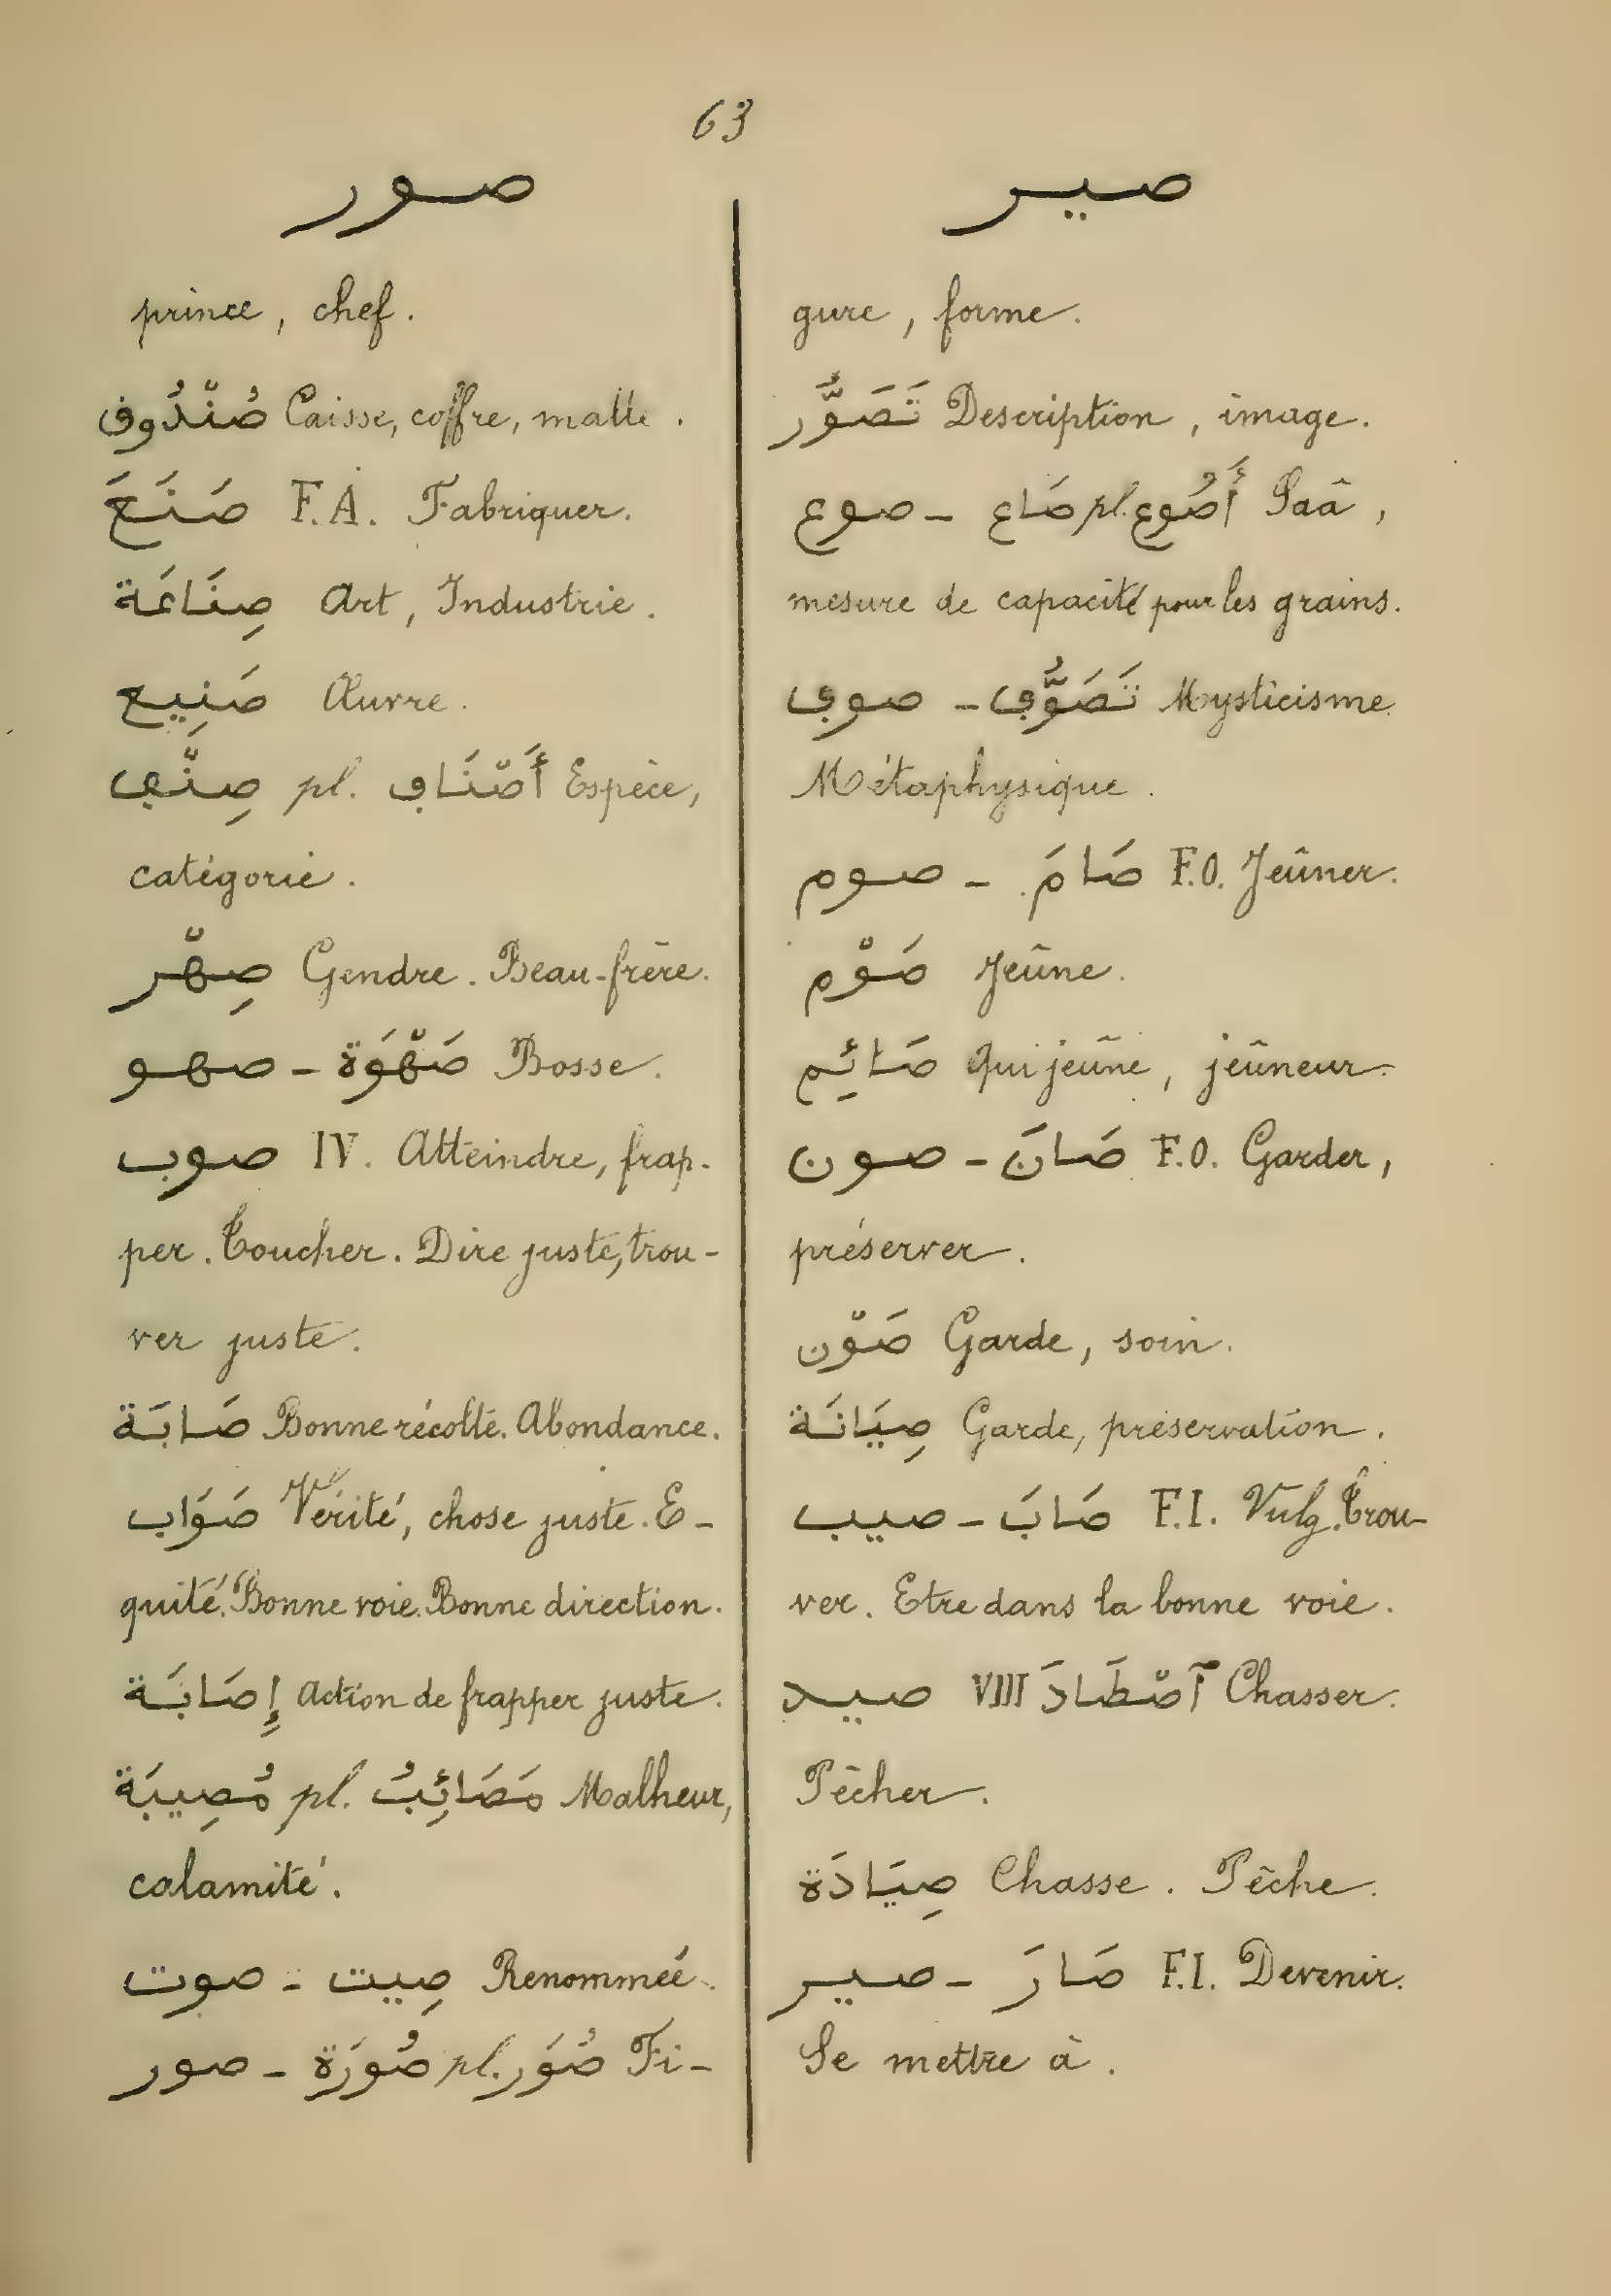 63
صور
prince, chef.
صُنْدُوق Caisse, coffre, malle.
صَنَعَ F.A. Fabriquer.
صِنَاعَة Art, Industrie.
صَنِيع Œuvre.
صِنْف pl. أَصْنَاف Espèce,
catégorie.
صِهْر Gendre. Beau-frère.
صهو - صَهْوَة Bosse.
صوب IV. Atteindre, frap-
per. Toucher. Dire juste, trou-
ver juste.
صَابَة Bonne récolte. Abondance.
صَوَاب Vérité, chose juste. E-
quité. Bonne voie. Bonne direction.
إِصَابَة Action de frapper juste.
مُصِيبَة pl. مَصَائِبُ Malheur,
calamité.
صوت - صِيت Renommée.
صور - صُورَة pl. صُوَر Fi-
صير
gure, forme.
تَصَوُّر Description, image.
صوع - صَاع pl. أَصُوع Saâ,
mesure de capacité pour les grains.
صوف - تَصَوُّف Mysticisme
Métaphysique.
صوم - صَامَ F.O. Jeûner.
صَوْم Jeûne.
صَائِم Qui jeûne, jeûneur.
صون - صَانَ F.O. Garder,
préserver.
صَوْن Garde, soin.
صِيَانَة Garde, préservation.
صيب - صَابَ F.I. Vulg. Trou-
ver. Etre dans la bonne voie.
صيد VIII آصْطَادَ Chasser.
Pêcher.
صِيَادَة Chasse. Pêche.
صير - صَارَ F.I. Devenir.
Se mettre à.